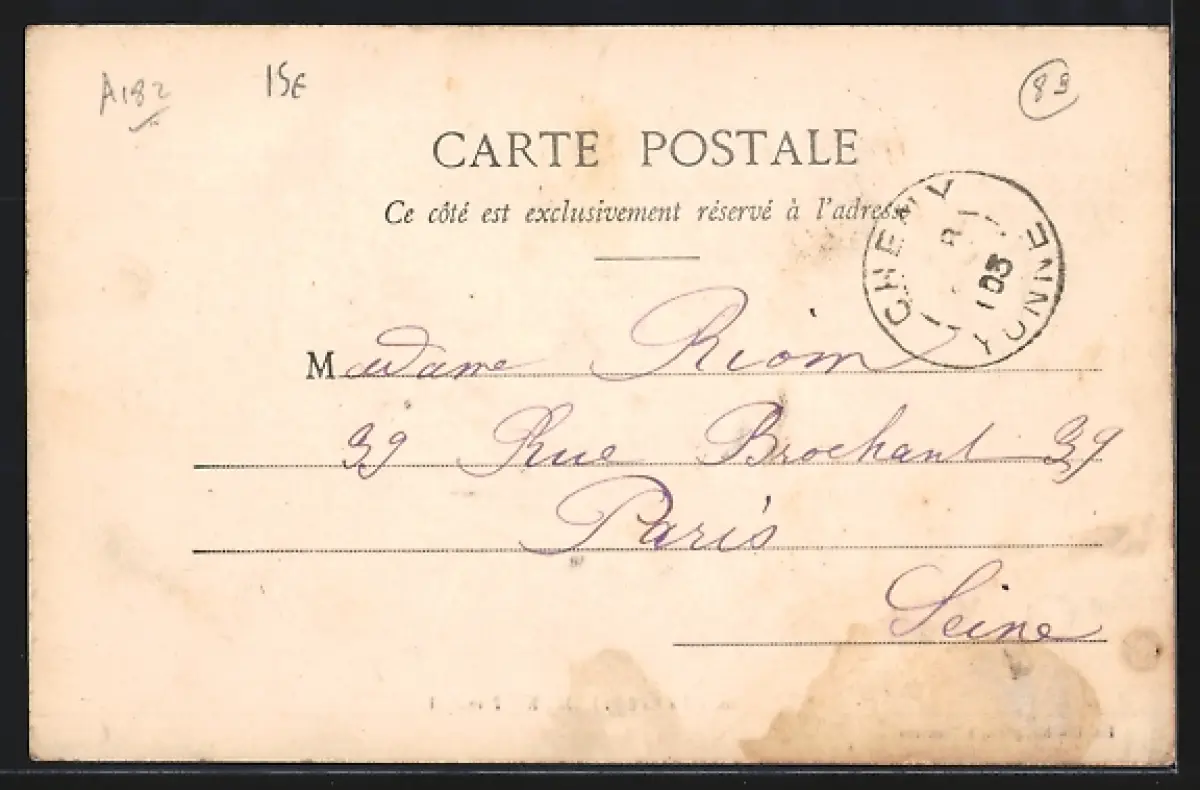 A182
15€
89
CARTE POSTALE
Ce côté est exclusivement réservé à l'adresse
CHENY
YONNE
03
Madame Riom
39 Rue Brochant 39
Paris
Seine